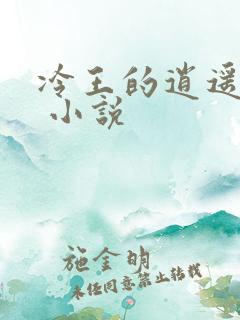 冷王的逍遥
小說
施金明
未经同意禁止转载